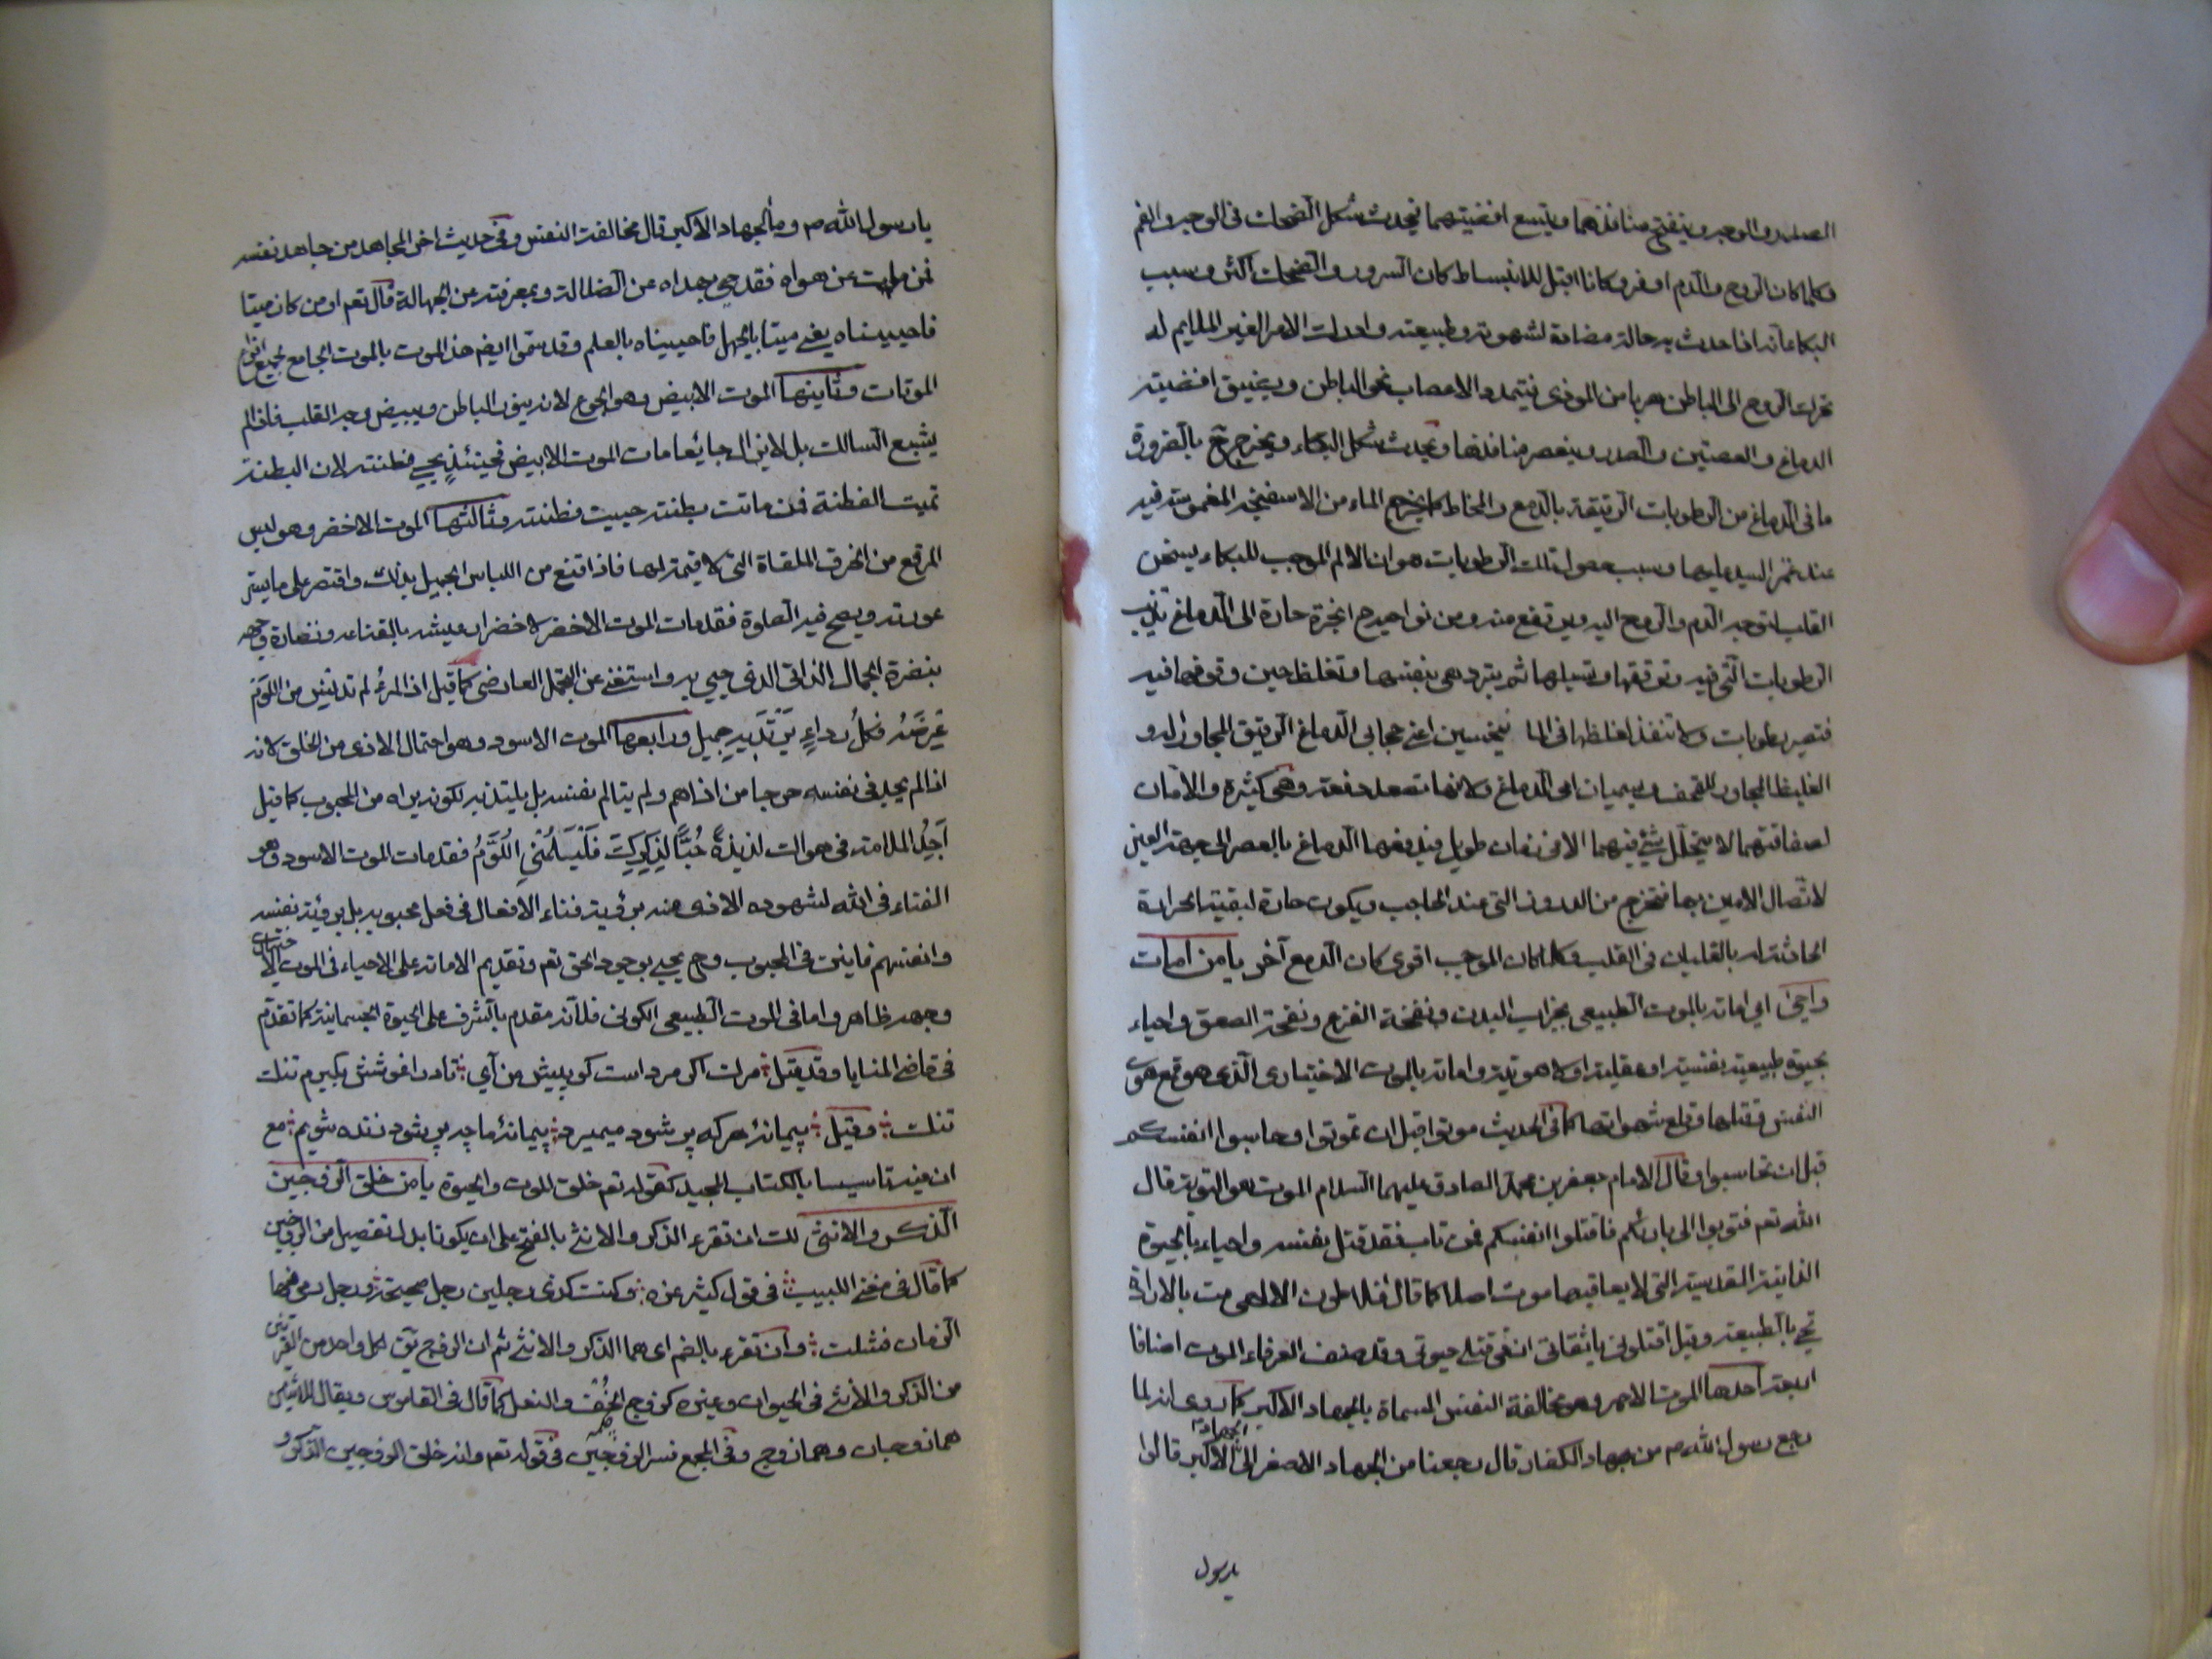 الصدر والوجه وينفتح منافذهما ويتسع افضيتهما فيحدث شكل الضحك فى الوجه والفم
وكلما كان الروح والدم اوفر وكانا اقبل للانبساط كان السرور والضحك اكثر وسبب
البكاء انه اذا حدث به حالة مضادة لشهوته وطبيعته وادرك الامر الغير الملايم له
تحرك الروح الى الباطن هربا من الموذى فيتمدد الاعصاب نحو الباطن ويضيق افضيته
الدماغ والعصبتين والصدر وينعصر منافذها ويحدث شكل البكاء ويخرج ح بالضرورة
ما فى الدماغ من الرطوبات الرقيقة بالدمع والمخاط كما يخرج الماء من الاسفنجه المغموسة فيه
عند غمز اليد عليها وسبب حصول تلك الرطوبات هو ان الالم الموجب للبكاء يسخن
القلب لتوجه الدم والروح اليه ويرتفع منه ومن نواحيه ح ابخرة حارة الى الدماغ تذيب
الرطوبات التى فيه وترققها وتسيلها ثم يتبرد هى بنفسها وتغلظ حين وقوفها فيه
فتصير رطوبات ولا تنفذ لغلظها فى الما نيخسين اعنى حجابى الدماغ الرقيق المجاور له و
الغليظ المجاور للقحف ويسميان امى الدماغ ولانها تصعد دفعة وهى كثيرة والامان
لصفاقتهما لا يتحلل شئ فيهما الا فى زمان طويل فيدفعها الدماغ بالعصر الى جهة العين
لاتصال الامين بها فتخرج من الدروز التى عند الحاجب ويكون حارة لبقية الحرارة
الحادثة له بالغليان فى القلب وكلما كان الموجب اقوى كان الدمع آخر يا من امات
واحيى اى اماته بالموت الطبيعى بخراب البدن ونفخة الفزع ونفخة الصعق واحياء
بحيوة طبيعية نفسية او عقلية او لاهوتية واماته بالموت الاختيارى الذى هو قمع هوى
النفس وقتلها وقلع شهواتها كما فى الحديث موتوا قبل ان تموتوا وحاسبوا انفسكم
قبل ان تحاسبوا وقال الامام جعفر بن محمد الصادق عليهما السلام الموت هو التوبة قال
الله تعم فتوبوا الى بارئكم فاقتلوا انفسكم فمن تاب فقد قتل نفسه واحياه بالحيوة
الذاتية القدسية التى لا يعاقبها موت اصلا كما قال افلاطون الالهى مت بالارادة
تحى بالطبيعة وقيل اقتلونى يا ثقاتى ان فى قتلى حيوتى وقد صنف العرفاء الموت اصنافا
اربعة احدها الموت الاحمر وهو مخالفة النفس المسماة بالجهاد الاكبر كما روى انه لما
رجع رسول الله ص من جهاد الكفار قال رجعنا من الجهاد الاصغر الى الجهاد الاكبر قالوا
يا رسول
يا رسول الله ص وما الجهاد الاكبر قال مخالفت النفس وفى حديث اخر المجاهد من جاهد نفسه
فمن مات عن هواه فقد حيى بهداه عن الضلالة وبمعرفته من الجهالة قال تعم او من كان ميتا
فاحييناه يعنى ميتا بالجهل فاحييناه بالعلم وقد سموا ايضم هذا الموت بالموت الجامع لجميع انواع
الموتات وثانيها الموت الابيض وهو الجوع لانه ينور الباطن ويبيض وجه القلب فاذا لم
يشبع السالك بل لا يزال جايعا مات الموت الابيض فحينئذ يحيى فطنته لان البطنة
تميت الفطنة فمن ماتت بطنته حييت فطنته وثالثها الموت الاخضر وهو لبس
المرقع من الخرق الملقاة التى لا قيمة لها فاذا قنع من اللباس الجميل بذلك واقتصر على ما يستر
عورته ويصح فيه الصلوة فقد مات الموت الاخضر لاخضرار عيشه بالقناعه ونضارة وجهه
بنضرة الجمال الذاتى الذى حيى به واستغنى عن التجمل العارضى كما قيل اذا المرء لم تدنس من اللؤم
عرضه فكل رداء يرتديه جميل ورابعها الموت الاسود وهو احتمال الاذى من الخلق لانه
اذا لم يجد فى نفسه حرجا من اذاهم ولم يتالم نفسه بل يلتذ به لكونه يراه من المحبوب كما قيل
اجد الملامة فى هواك لذيذة حبا لذكرك فليلمنى اللوم فقد مات الموت الاسود وهو
الفناء فى الله لشهوده الاذى منه برؤية فناء الافعال فى فعل محبوبه بل برؤية نفسه
وانفسهم فانين فى المحبوب وح يحيى بوجود الحق تعم وتقديم الاماتة على الاحياء فى الموت الاختيارى
وجهه ظاهر واما فى الموت الطبيعى الكونى فلانه مقدم بالشرف على الحيوة الجسمانية كما تقدم
فى قاضى المنايا وقد قيل مرك اكر مرد است كو پيش من آى تا در اغوشش بكيرم تنك
تنك وقيل پيمانه هر كه پر شود ميميرد پيمانه ما چه پر شود زنده شويم مع
ان فيه تاسيسا بالكتاب المجيد كقوله تعم خلق الموت والحيوة يا من خلق الزوجين
الذكر والانثى لك ان تقرء الذكر والانثى بالفتح على ان يكونا بدل تفصيل من الزوجين
كما قال فى مغنى اللبيب فى قول كثير عزه وكنت كذى رجلين رجل صحيحة ورجل رمى فيها
الزمان فشلت وان تقرء بالضم اى هما الذكر والانثى ثم ان الزوج يق لكل واحد من القرينين
من الذكر والانثى فى الحيوان وغيره كزوج الخف والنعل كما قال فى القاموس ويقال للاثنين
هما زوجان وهما زوج وفى المجمع فسر الزوجين فى قوله تعم وانه خلق الزوجين الذكر و